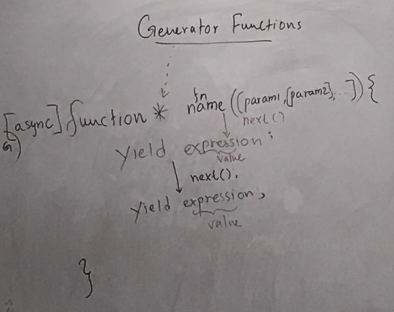 Generator Functions
fn
[async] function * name ([param1, [param2], ...]) {
next()
yield expression;
value
next().
yield expression;
value
}